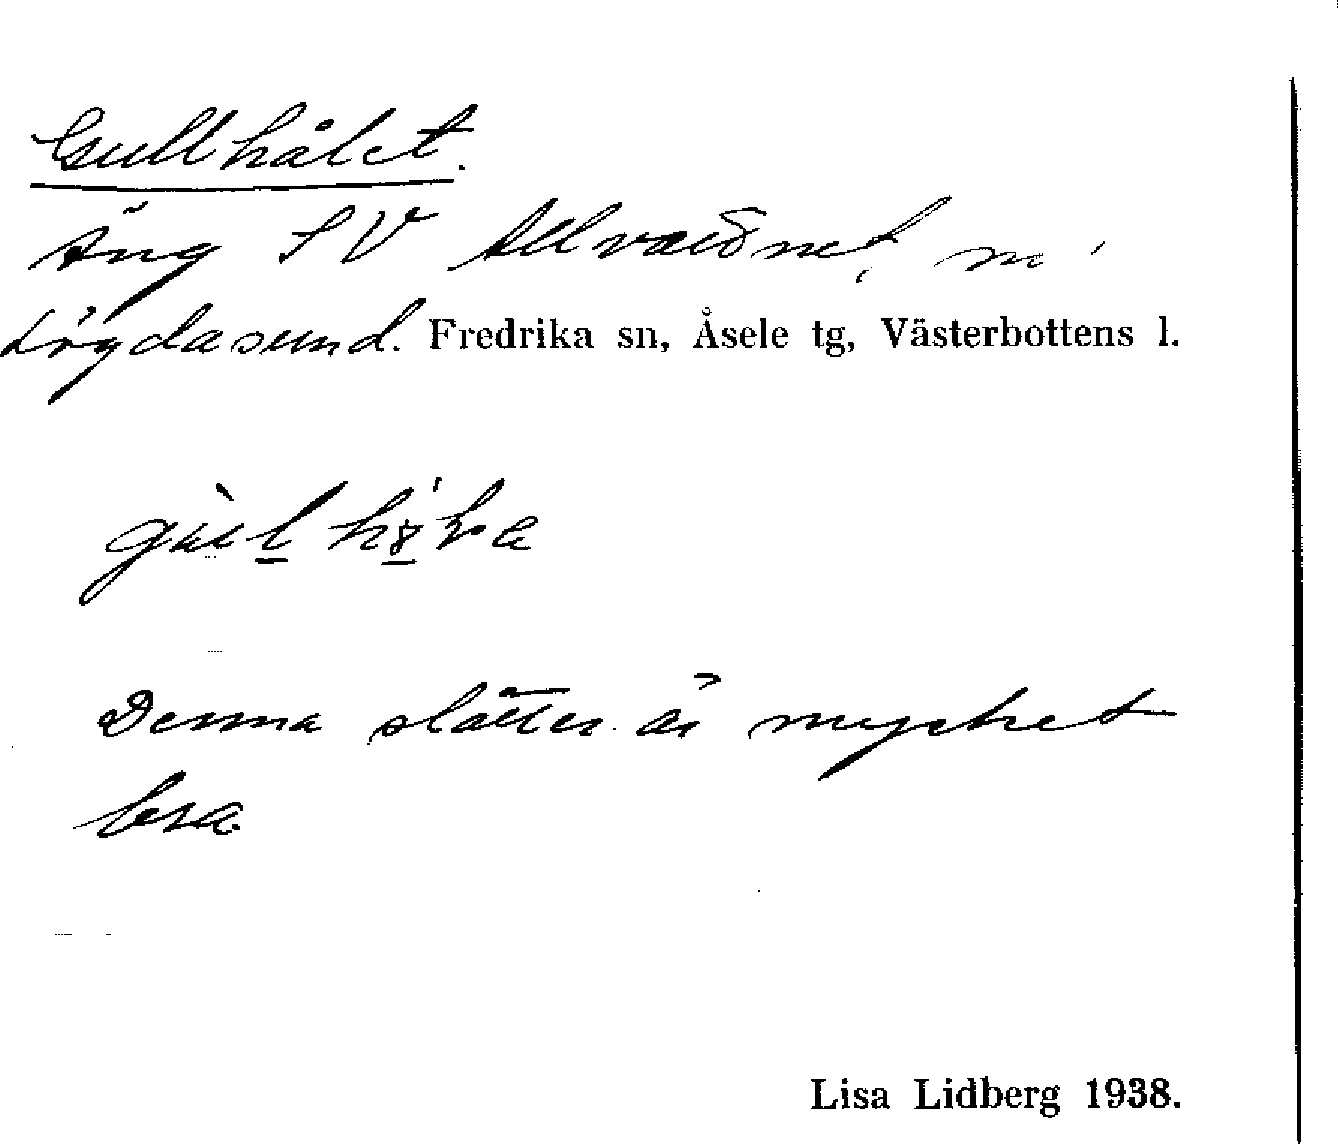 Gullhålet.
Äng SV
Lögdasund. Fredrika sn, Åsele tg, Västerbottens l.
Denna slåtter är mycket
bra.
Lisa Lidberg 1938.